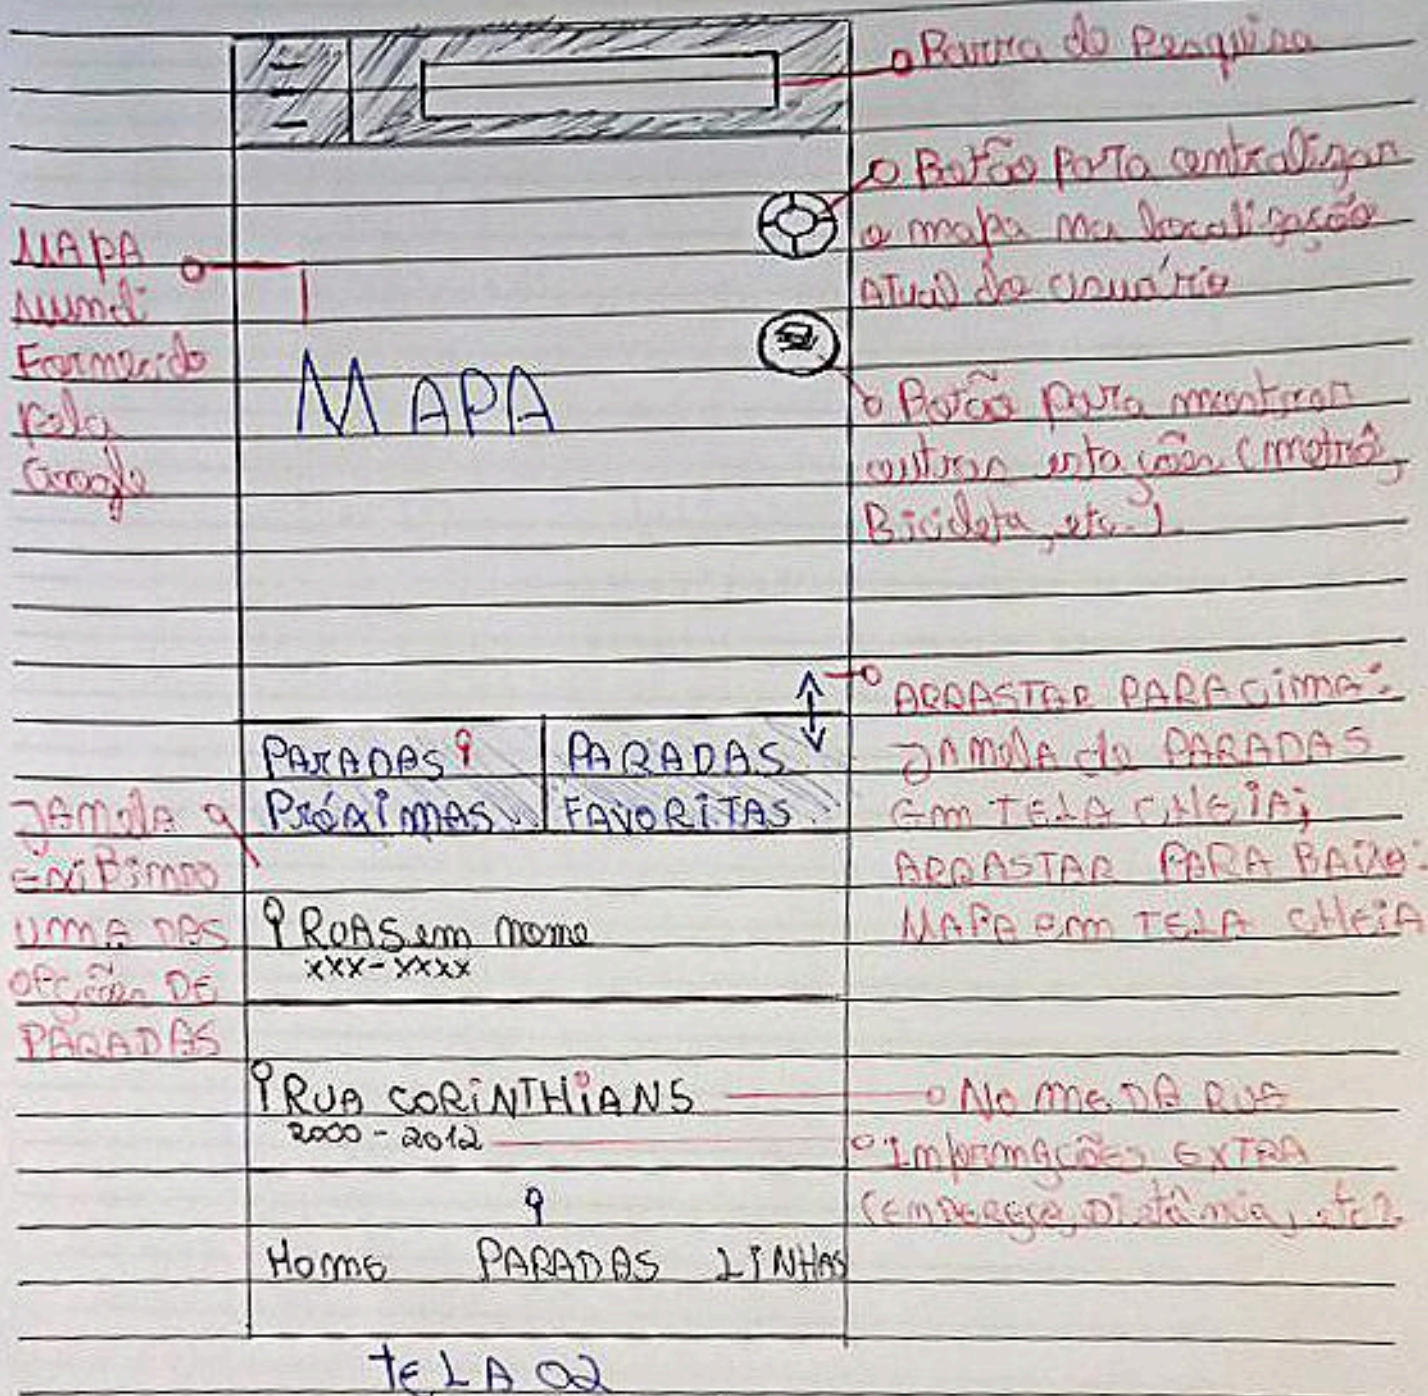 Barra de Pesquisa
Botão para centralizar
o mapa na localização
atual do usuário
MAPA
Mundi
Fornecido
pela
Google
MAPA
Botão para mostrar
outras estações (metrô,
Bicicleta, etc.)
ARRASTAR PARA CIMA:
JANELA de PARADAS
Em TELA CHEIA;
ARRASTAR PARA BAIXO:
MAPA em TELA CHEIA
PARADAS
PRÓXIMAS
PARADAS
FAVORITAS
JANELA
EXIBINDO
UMA DAS
OPÇões DE
PARADAS
RUA Sem nome
xxx-xxxx
RUA CORINTHIANS
2000 - 2012
NOME DA RUA
INFORMAÇÕES EXTRA
(ENDEREÇO, Distância, etc).
Home PARADAS LINHAS
TELA 02